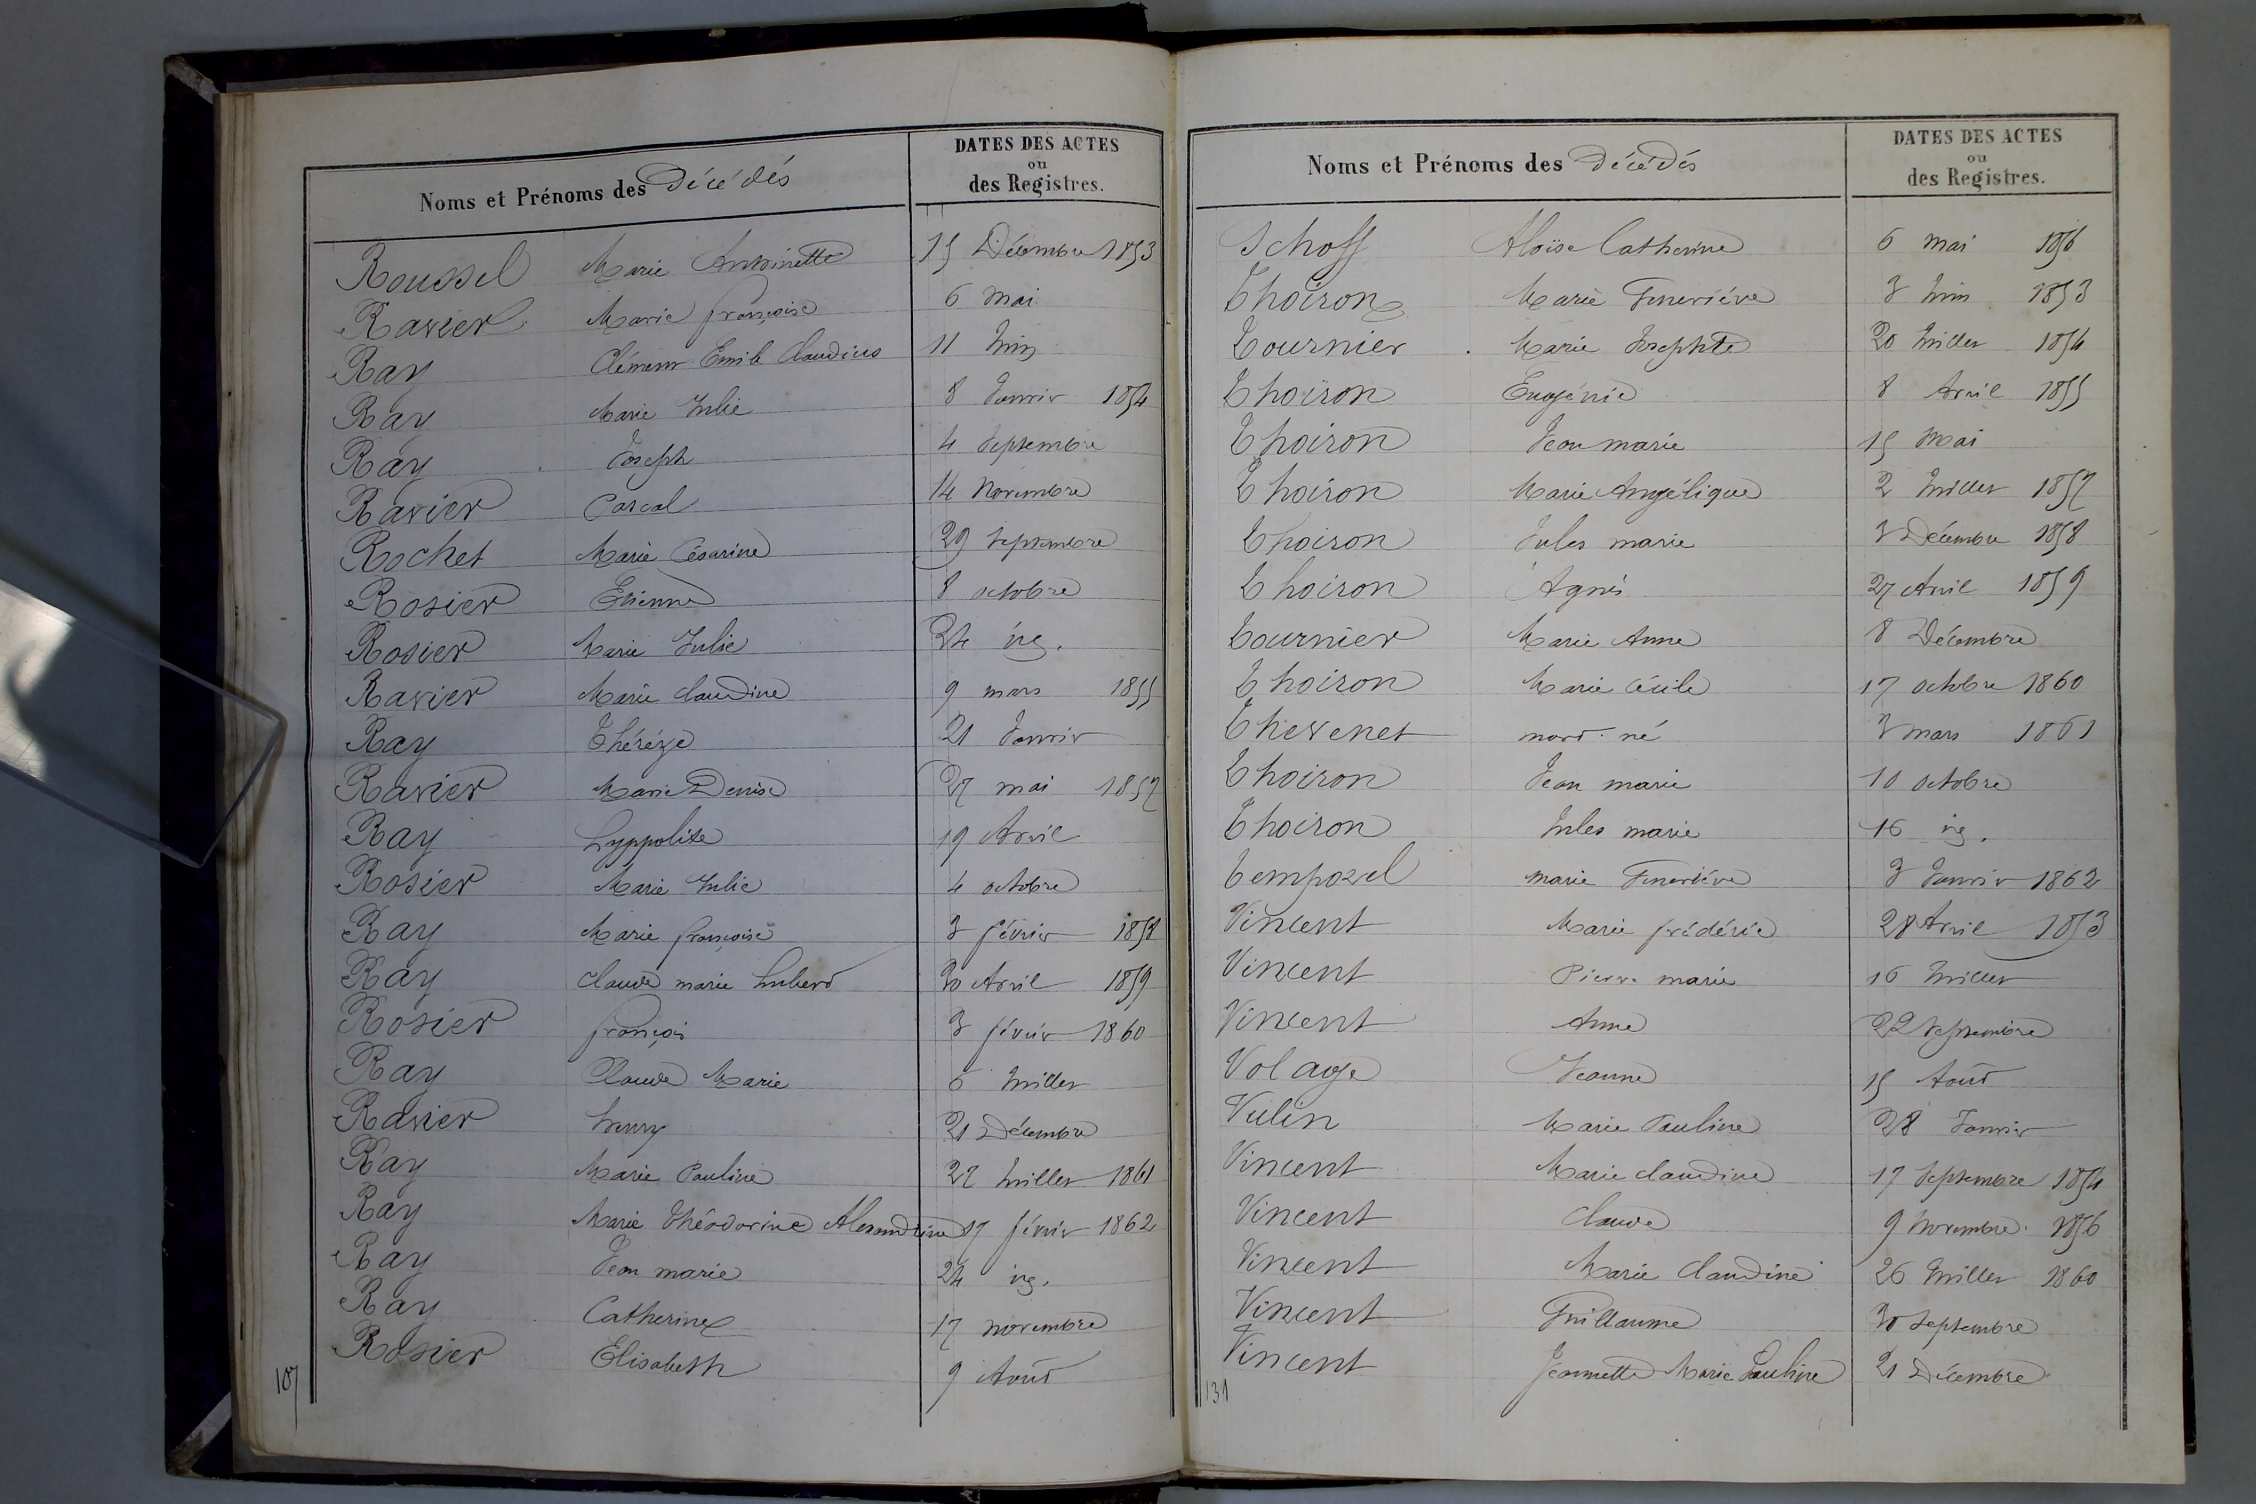 Noms et Prénoms des Décédés
DATES DES ACTES
ou
des Registres.
Roussel Marie Antoinette 15 Décembre 1853
Ravier Marie françoise 6 Mai
Ray Clément Emile Claudius 11 Juin
Ray Marie Julie 8 Janvier 1854
Ray Joseph 4 Septembre
Ravier Pascal 14 Novembre
Rochet Marie Césarine 29 Septembre
Rosier Etienne 8 octobre
Rosier Marie Julie 24
Ravier Marie Claudine 9 mars 1855
Ray Thérèze 21 Janvier
Ravier Marie Denise 27 mai 1857
Ray hyppolite 19 Avril
Rosier Marie Julie 4 octobre
Ray Marie françoise 3 février 1858
Ray Claude marie 30 Avril 1859
Rosier françois 3 février 1860
Ray Claude Marie 6 Juillet
Ravier henry 21 Décembre
Ray Marie Pauline 27 Juillet 1861
Ray Marie Théodorine Alexandrine 17 février 1862
Ray Jean marie 24
Ray Catherine 17 novembre
Rosier Elisabeth 9 Août
107
Noms et Prénoms des Décédés
DATES DES ACTES
ou
des Registres.
Schoff Aloïse Catherine 6 mai 1856
Thoiron Marie Geneviève 3 Juin 1853
Tournier Marie Josephte 20 Juillet 1854
Thoiron Eugénie 8 Avril 1855
Thoiron Jean marie 15 mai
Thoiron Marie Angélique 2 Juillet 1857
Thoiron Jules marie 3 Décembre 1858
Thoiron Agnès 27 Avril 1859
Tournier Marie Anne 8 Décembre
Thoiron Marie Cécile 17 octobre 1860
Thevenet mort-né 3 mars 1861
Thoiron Jean marie 10 octobre
Thoiron Jules marie 16
Temporel marie Geneviève 3 Janvier 1862
Vincent Marie frédéric 28 Avril 1853
Vincent Pierre marie 16 Juillet
Vincent Anne 22 Septembre
Volage Jeanne 15 Août
Vulin Marie Pauline 28 Janvier
Vincent Marie Claudine 17 Septembre 1854
Vincent Claude 9 Novembre 1856
Vincent Marie Claudine 26 Juillet 1860
Vincent Guillaume 30 Septembre
Vincent Jeannette Marie Pauline 21 Décembre
131